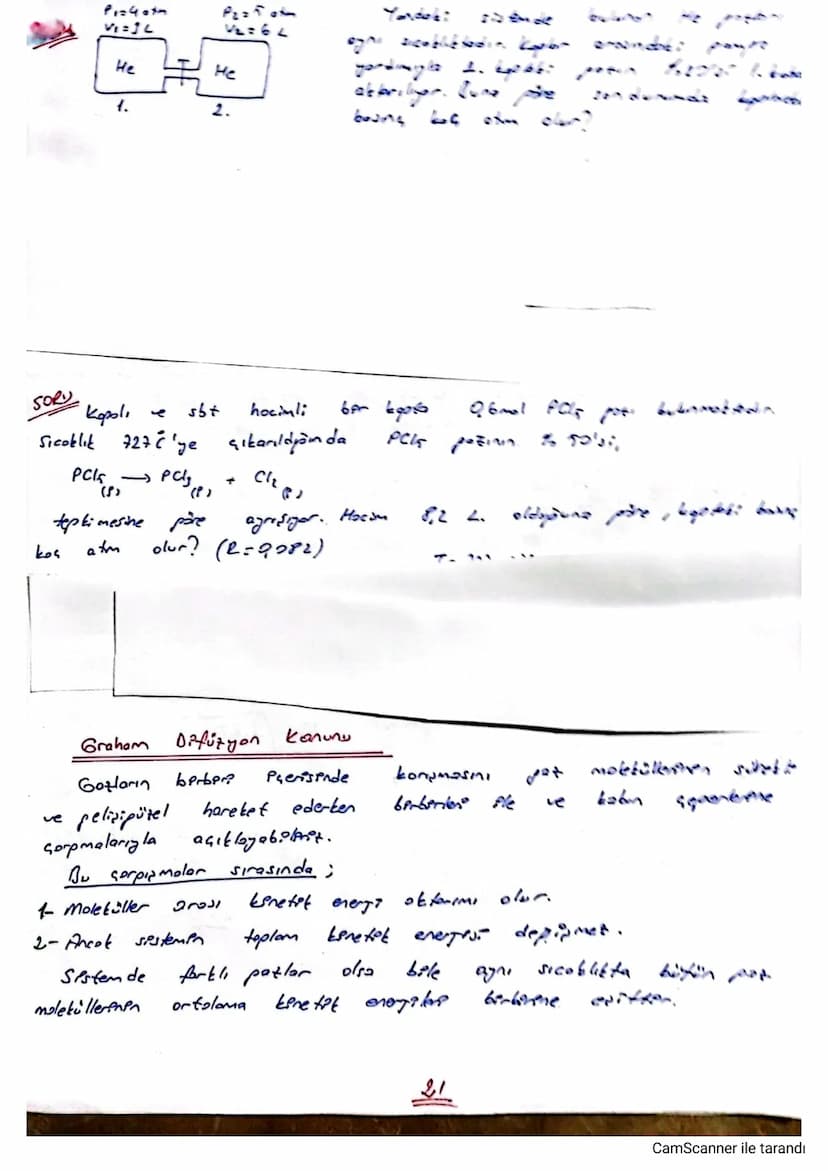 P₁=4 atm P₂=5 atm
V₁=3L V₂=6 L
He He
1. 2.
Yandaki sistemde bulunan He
aynı sıcaklıktadır. Kaplar arasındaki
yardımıyla
aktarılıyor. Buna göre son durumda
basınç kaç atm olur?
SORU Kapalı ve sbt hacimli bir kapta 0,6 mol PCl₅ gazı bulunmaktadır.
Sıcaklık 727°C'ye çıkarıldığında PCl₅ gazının % 50'si,
PCl₅(g) → PCl₃(g) + Cl₂(g)
tepkimesine göre ayrışıyor. Hacim 8,2 L. olduğuna göre, kaptaki basınç
kaç atm olur? (R=0,082)
Graham Difüzyon Kanunu
Gazların birbiri içerisinde gaz moleküllerinin sürekli
ve gelişigüzel hareket ederken birbirleri ile ve kabın çeperlerine
çarpmalarıyla açıklayabiliriz.
Bu çarpışmalar sırasında ;
1- Moleküller arası kinetik enerji aktarımı olur.
2- Ancak sistemin toplam kinetik enerjisi değişmez.
Sistemde farklı gazlar olsa bile aynı sıcaklıkta bütün gaz
moleküllerinin ortalama kinetik enerjileri birbirine eşittir.
21
CamScanner ile tarandı